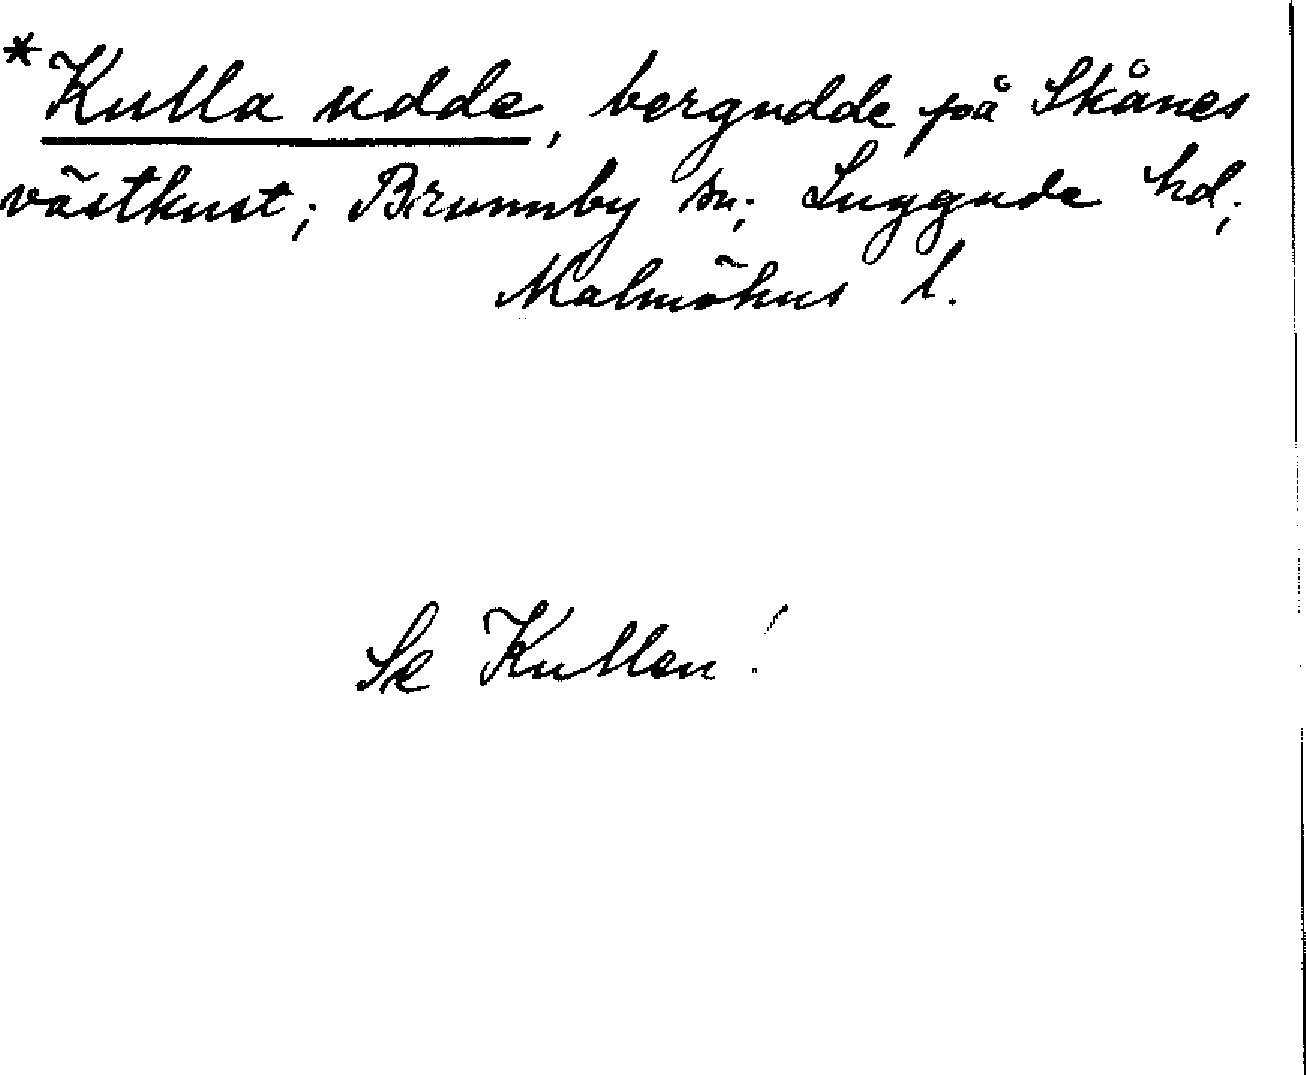 *Kulla udde, bergudde på Skånes
västkust; Brunnby sn; Luggude hd;
Malmöhus l.
Se Kullen!